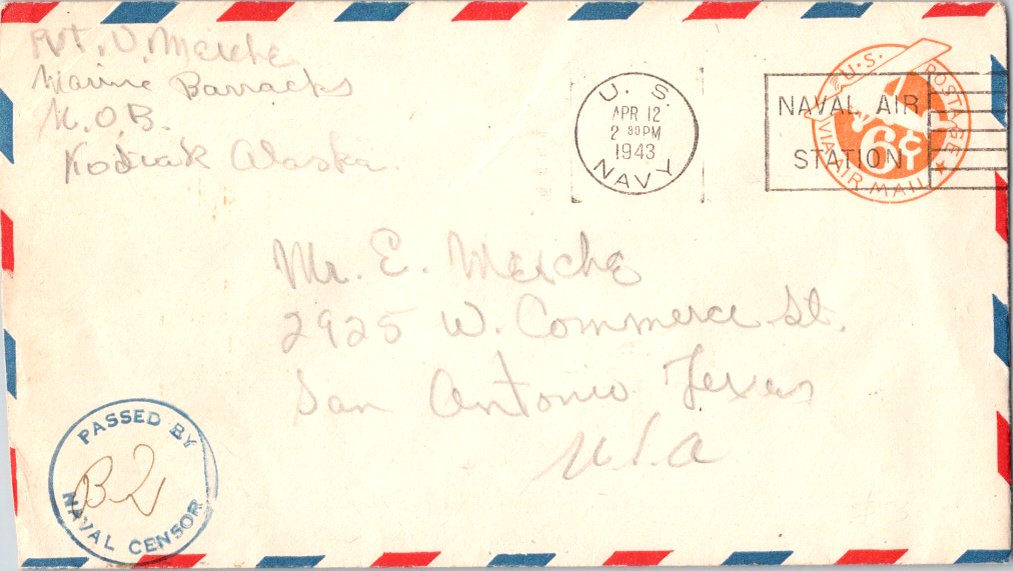 Pvt. V. Meiche
Marine Barracks
N.O.B.
Kodiak Alaska.
U. S.
APR 12
2 30 PM
1943
NAVY
NAVAL AIR
STATION
U.S. POSTAGE
6¢
VIA AIR MAIL
Mr. E. Meiche
2925 W. Commerce St.
San Antonio Texas
U.S.A
PASSED BY
B2
NAVAL CENSOR